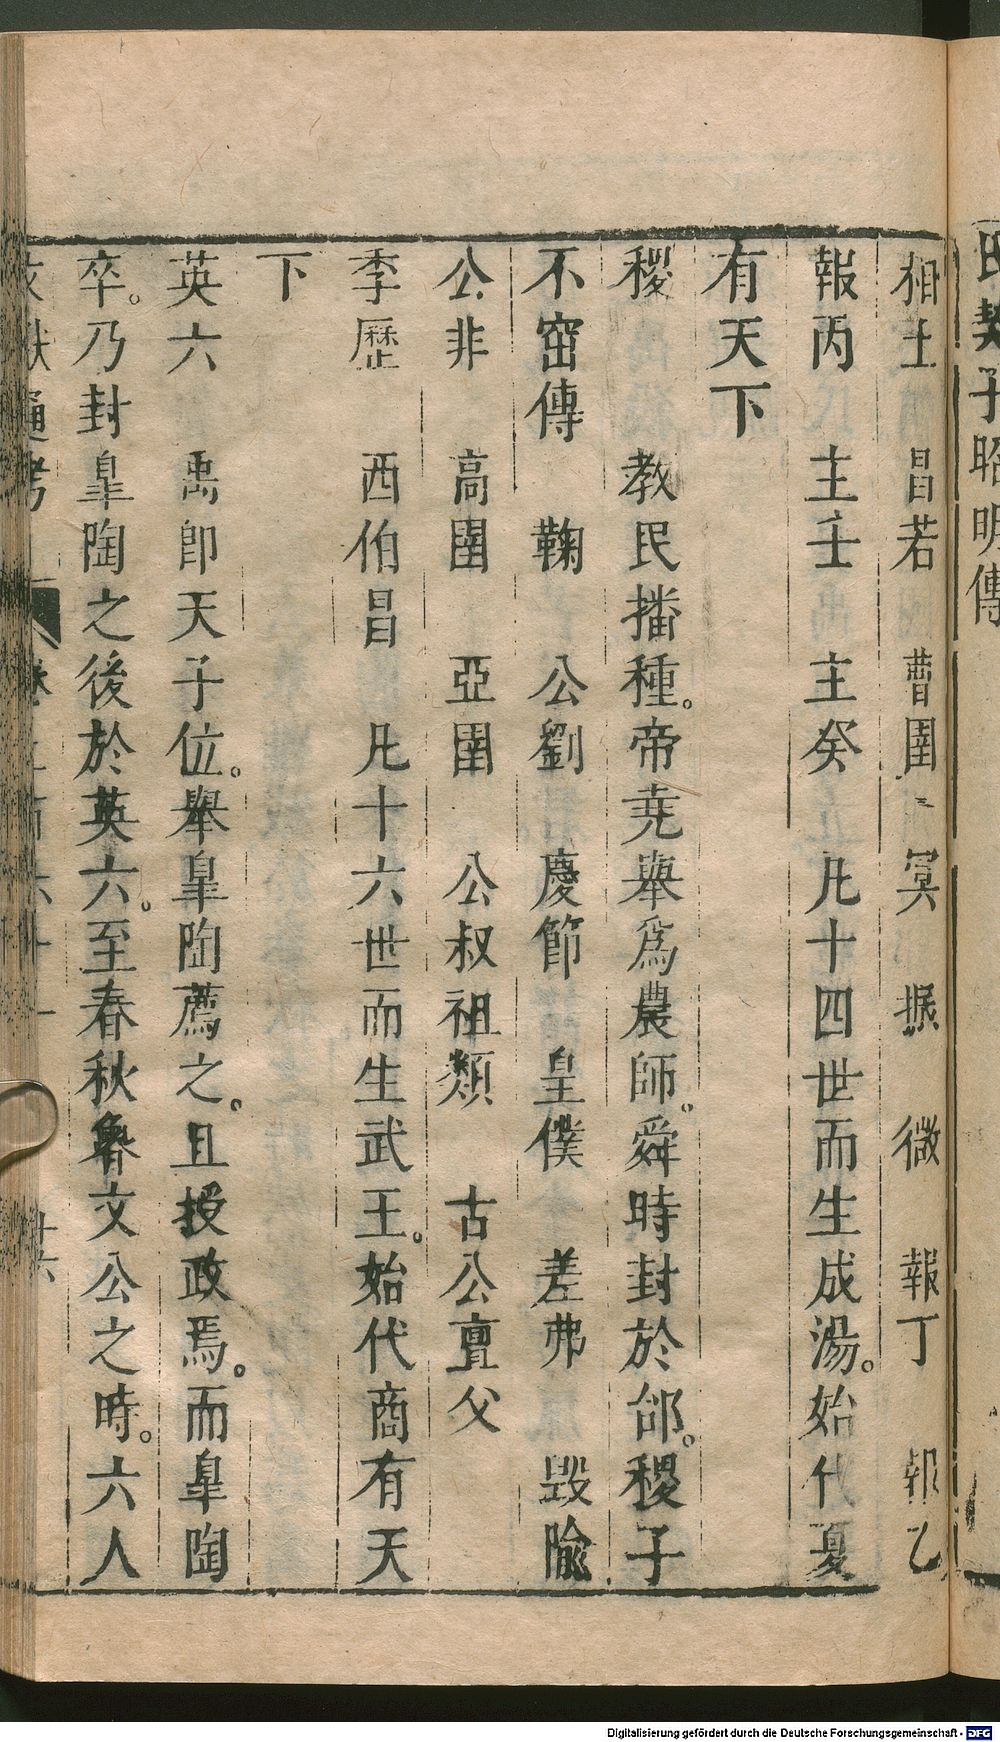 氏契子昭明傳
相土　昌若　曹圉　冥　振　微　報丁　報乙
報丙　主壬　主癸　凡十四世而生成湯。始代夏
有天下
稷　教民播種。帝堯舉爲農師。舜時封於邰。稷子
不窋傳　鞠　公劉　慶節　皇僕　差弗　毀隃
公非　高圉　亞圉　公叔祖類　古公亶父
季歷　西伯昌　凡十六世而生武王。始代商有天
下
英六　禹卽天子位。舉皐陶薦之。且授政焉。而皐陶
卒。乃封皐陶之後於英六。至春秋魯文公之時。六人
Digitalisierung gefördert durch die Deutsche Forschungsgemeinschaft - DFG